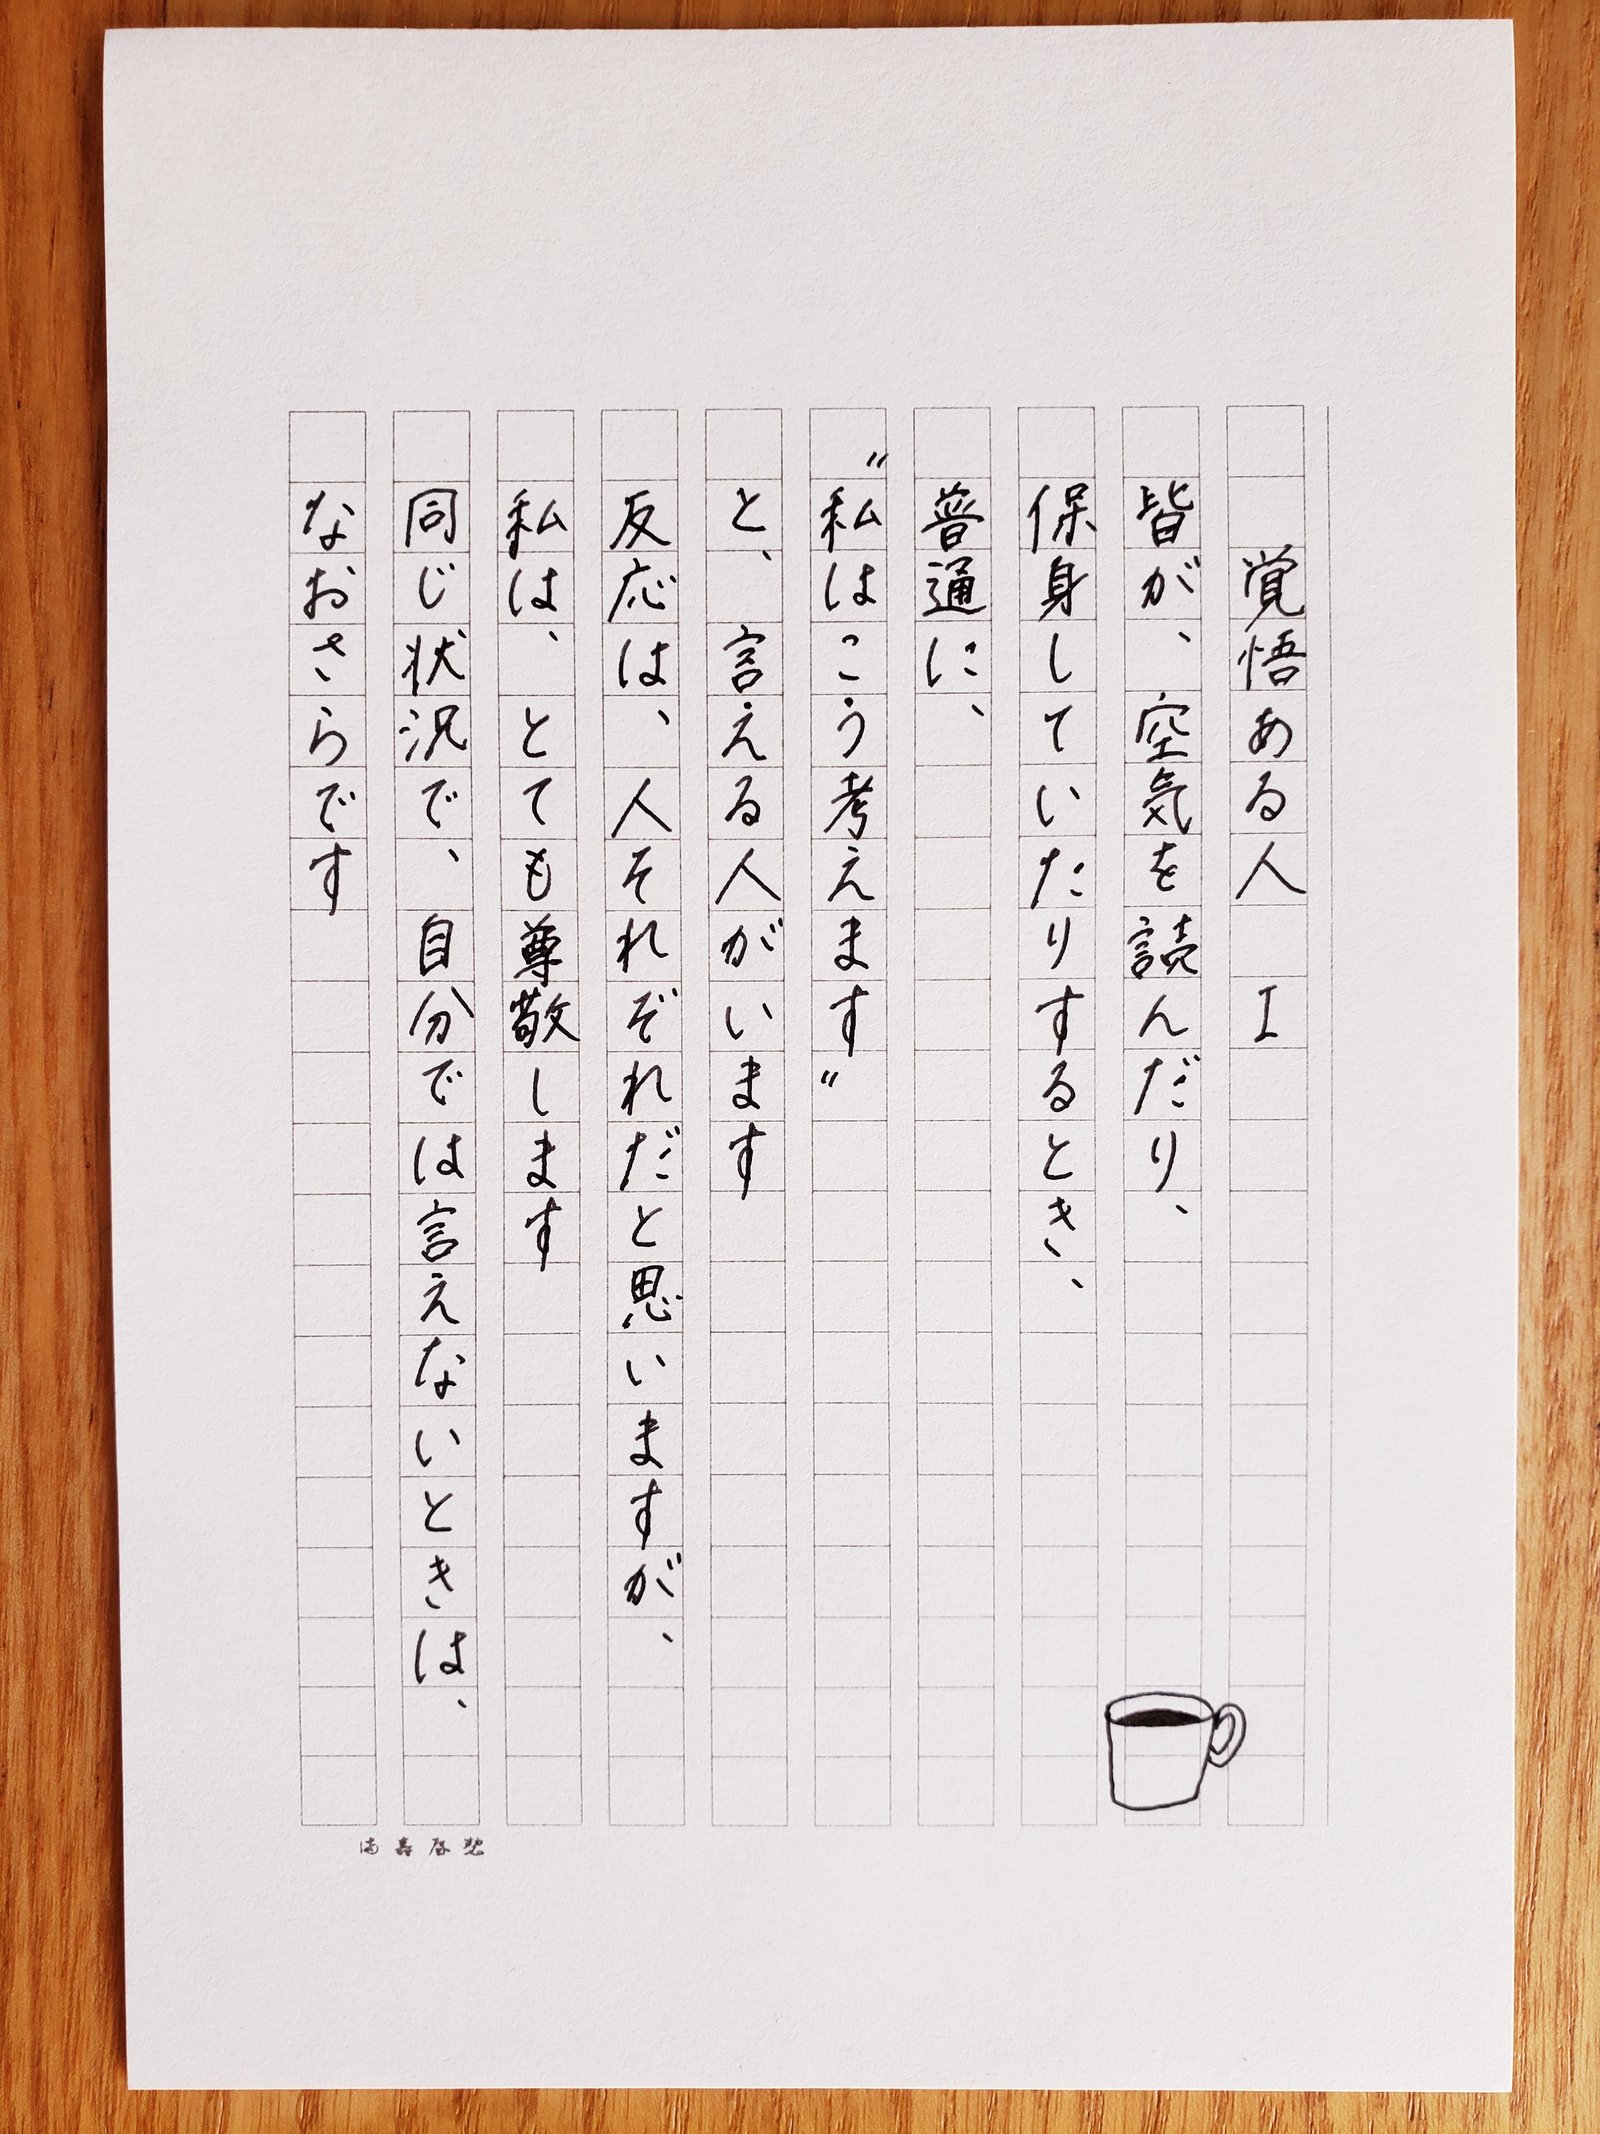 覚悟ある人 I
皆が、空気を読んだり、
保身していたりするとき、
普通に、
"私はこう考えます"
と、言える人がいます
反応は、人それぞれだと思いますが、
私は、とても尊敬します
同じ状況で、自分では言えないときは、
なおさらです